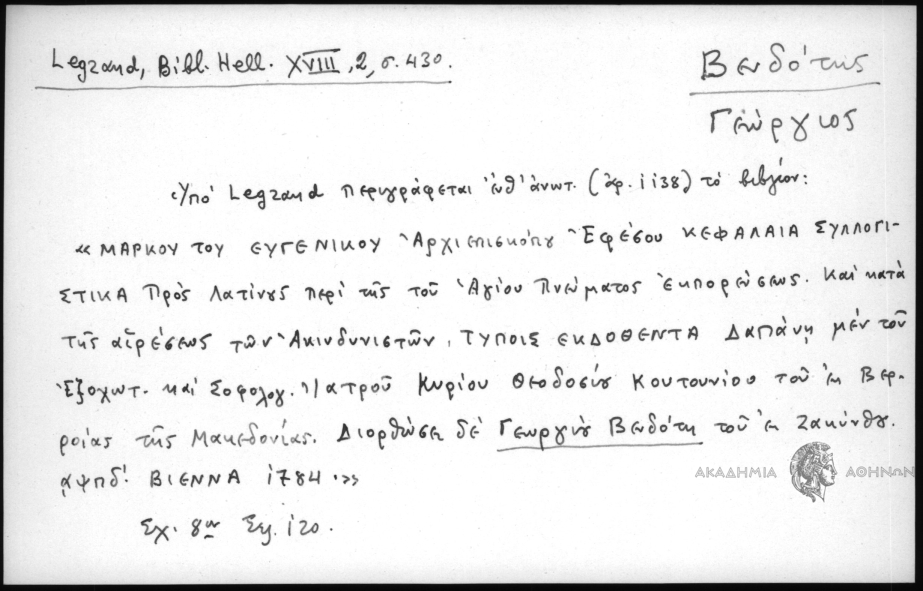 Legrand, Bibl. Hell. XVIII, 2, σ. 430.
Βενδότης
Γεώργιος
Ὑπό Legrand περιγράφεται ἐνθ' ἀνωτ. (ἀρ. 1138) τό βιβλίον:
« ΜΑΡΚΟΥ ΤΟΥ ΕΥΓΕΝΙΚΟΥ Ἀρχιεπισκόπου Ἐφέσου ΚΕΦΑΛΑΙΑ ΣΥΛΛΟΓΙ-
ΣΤΙΚΑ Πρός Λατίνους περί τῆς τοῦ Ἁγίου Πνεύματος ἐκπορεύσεως. Καί κατά
τῆς αἱρέσεως τῶν Ἀκινδυνιστῶν, ΤΥΠΟΙΣ ΕΚΔΟΘΕΝΤΑ Δαπάνῃ μέν τοῦ
Ἐξοχωτ. καί Σοφολογ. Ἰατροῦ Κυρίου Θεοδοσίου Κουτουνίου τοῦ ἐκ Βερ-
ροίας τῆς Μακεδονίας. Διορθώσει δέ Γεωργίου Βενδότη τοῦ ἐκ Ζακύνθου.
͵αψπδ' ΒΙΕΝΝΑ 1784 »
Σχ. 8ον Σελ. 120.
ΑΚΑΔΗΜΙΑ ΑΘΗΝΩΝ